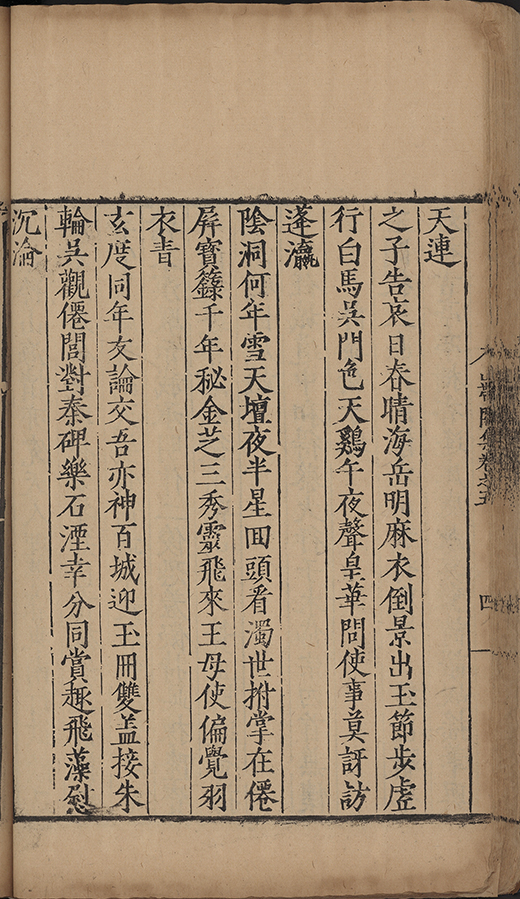 卷之五
四
天連
之子告哀日春晴海岳明麻衣倒景出玉節步虛
行白馬吳門色天鷄午夜聲皇華問使事莫訝訪
蓬瀛
陰洞何年雪天壇夜半星囬頭看濁世拊掌在僊
屏寶籙千年秘金芝三秀靈飛來王母使偏覺羽
衣青
玄度同年友論交吾亦神百城迎玉冊雙盖接朱
輪吳觀僊閭對秦碑樂石湮幸分同賞趣飛藻慰
沉淪